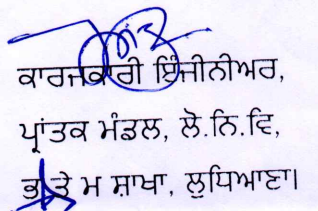 ਕਾਰਜਕਾਰੀ ਇੰਜੀਨੀਅਰ,
ਪ੍ਰਾਂਤਕ ਮੰਡਲ, ਲੋ.ਨਿ.ਵਿ,
ਭ ਤੇ ਮ ਸ਼ਾਖਾ, ਲੁਧਿਆਣਾ।